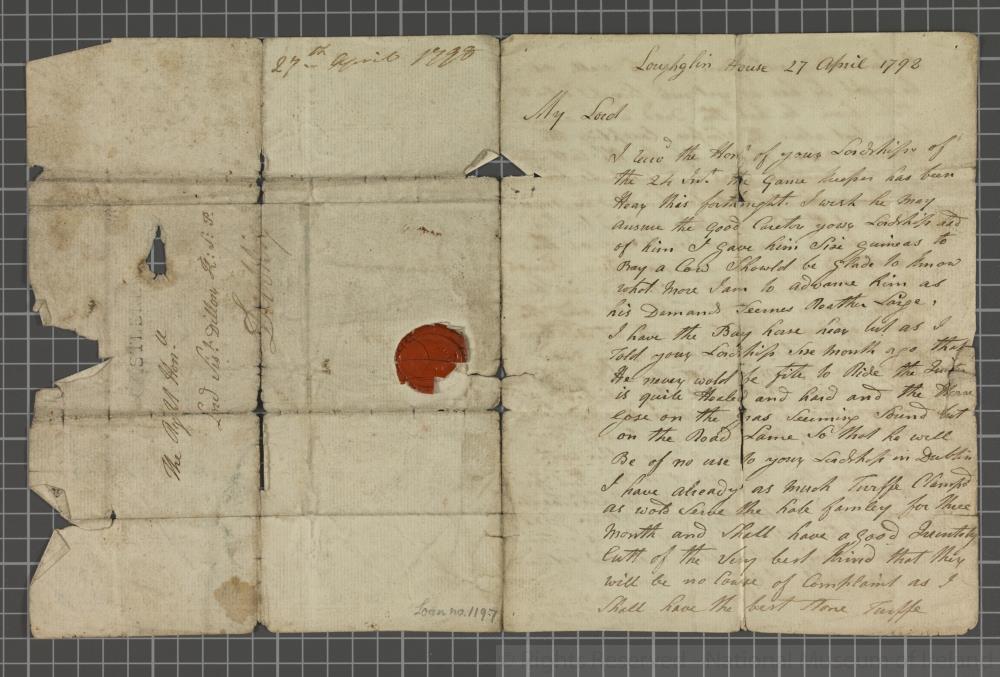 27th April 1798
The Right Honr.
Lord Vist. Dillon K: S: P.
Dublin
Loan no. 1197
Loughglin House 27 April 1798
My Lord
I Receivd the Honr of your Lordships of
the 24 Inst. the Game keeper has been
Hear this fortnight. I wish he may
ansure the Good Carctor your Lordship
of him I gave him Six guineas to
Bay a Cow Showld be glade to know
what More I am to advance him as
his Demands Seemes Roather Large,
I have the Bay horse hear but as I
Told your Lordship Sine Month ago that
He never wold be fite to Ride the
is quite Healed and hard and the Horse
gose on the gras Seeming Sound but
on the Road Lame So that he will
Be of no use to your Lordship in Dublin
I have already as much Turffe Clampd
as wold Serve the hole famley for three
Month and Shall have a good Quentety
Cutt of the Very best kind that they
will be no Couse of Complaint as I
Shall have the best Stone Turffe